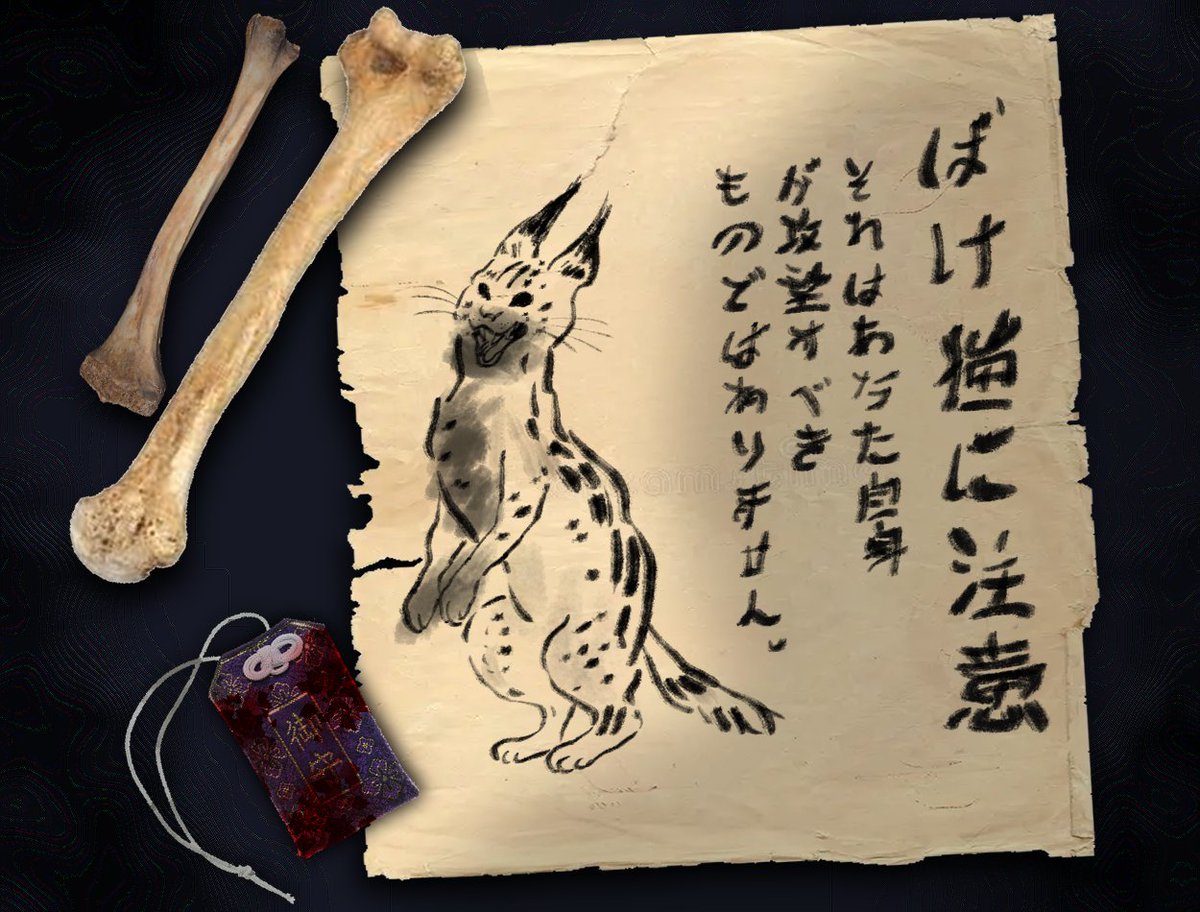 ばけ猫に注意
それはあなた自身
が攻撃すべき
ものではありません。
御守